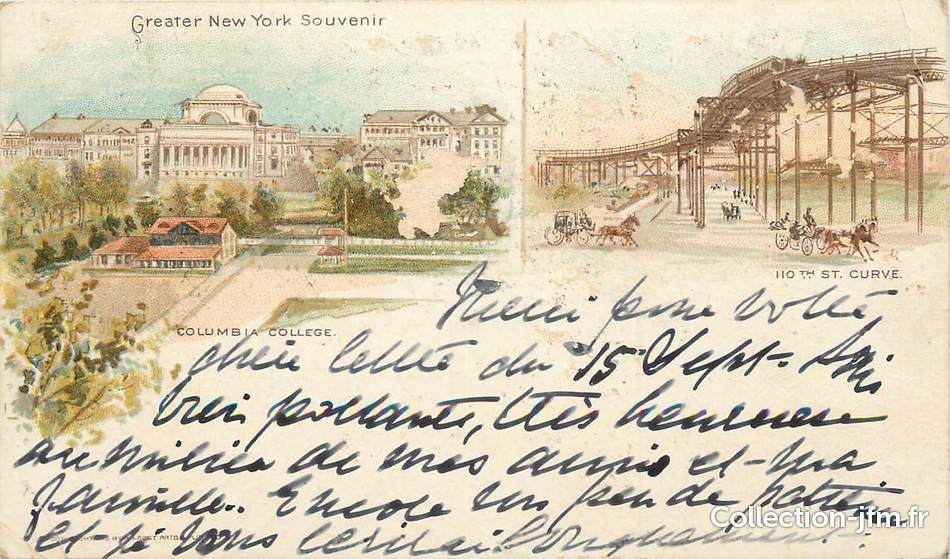 Greater New York Souvenir
110TH ST. CURVE.
COLUMBIA COLLEGE.
Merci pour votre
chère lettre du 15 Sept - Suis
bien portante, très heureuse
au milieu de mes amis et ma
famille. Encore un peu de patience
et je vous écrirai longuement -
Collection-jfm.fr